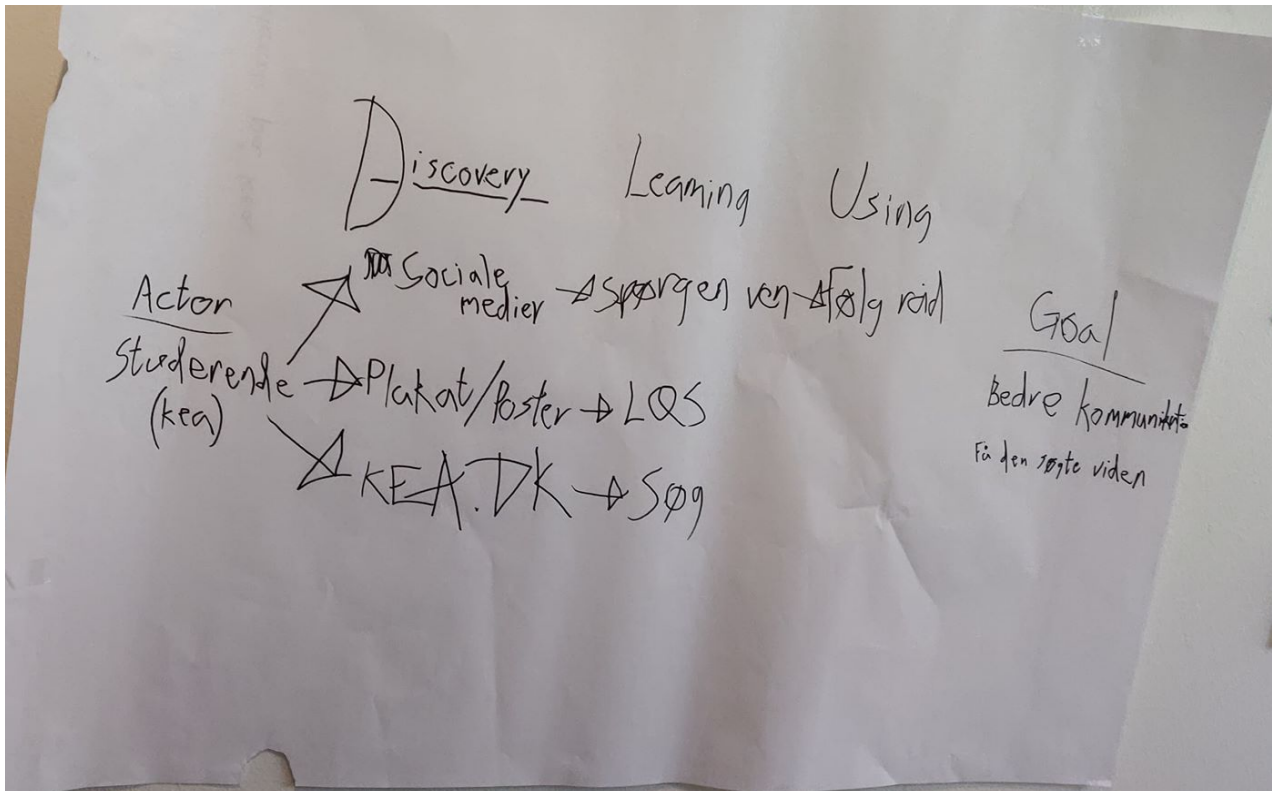 Discovery Learning Using
Actor
Studerende
(kea)
Sociale
medier → spørgen ven → Følg råd
→ Plakat/Poster → LQS
→ KEA.DK → Søg
Goal
Bedre
Få den søgte viden